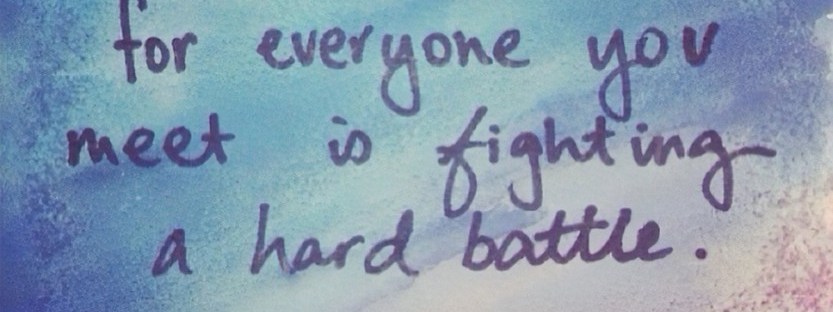 for everyone you
meet is fighting
a hard battle.